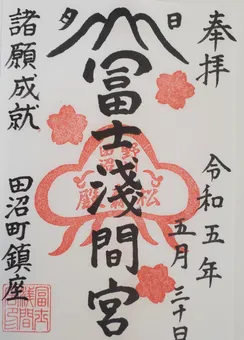 奉拝
令和五年
五月三十日
日
夕
冨士淺間宮
諸願成就
田沼町鎮座